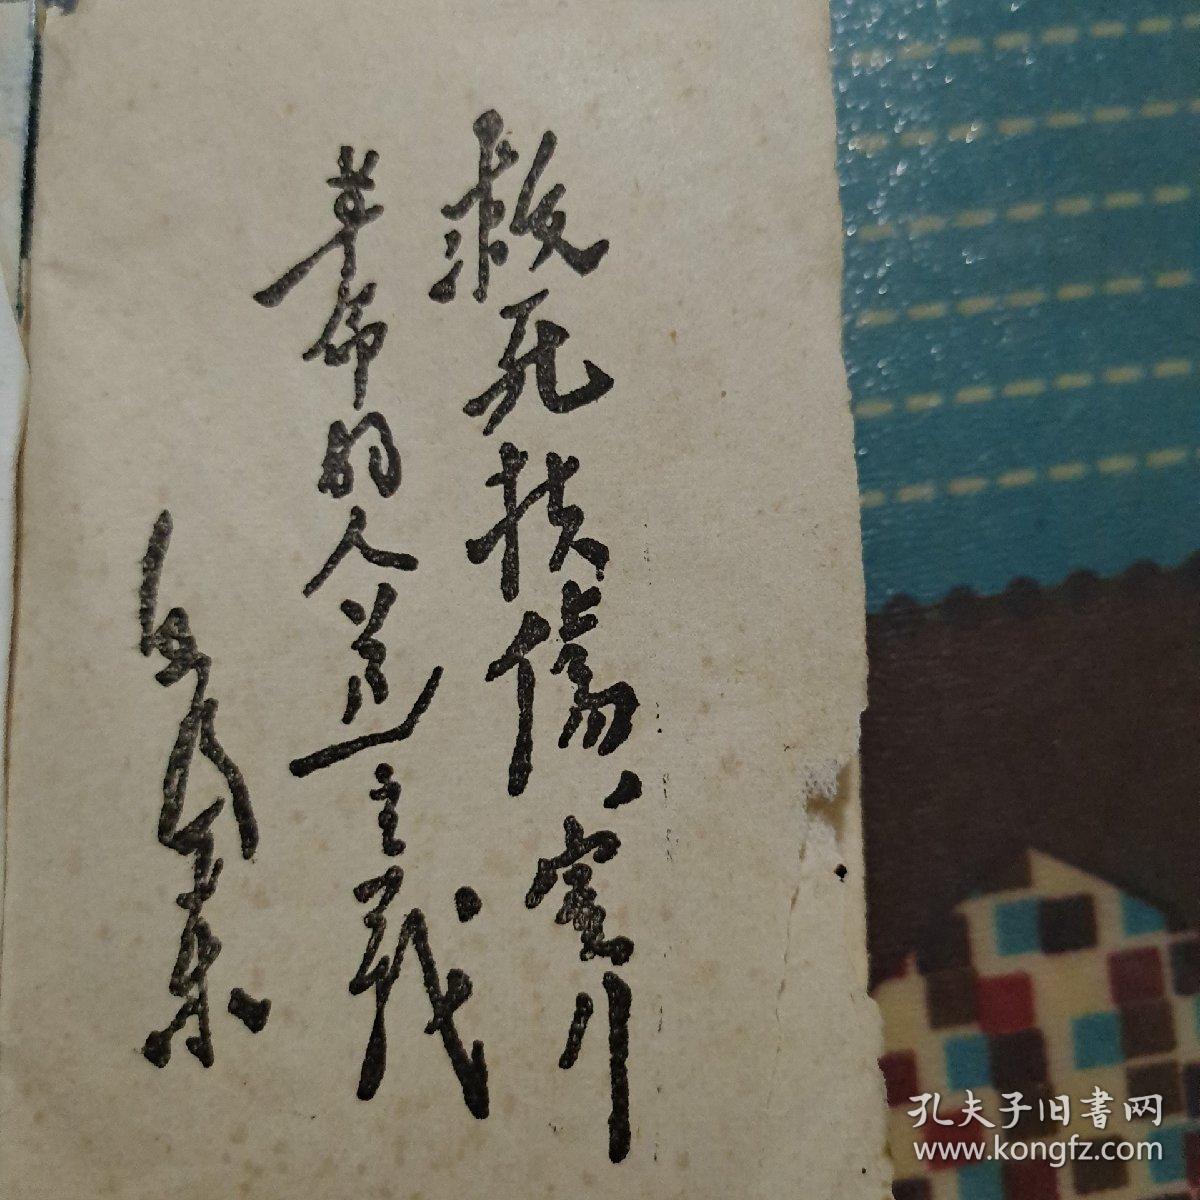 救死扶傷、实行
革命的人道主義
毛澤东
孔夫子旧書网
www.kongfz.com